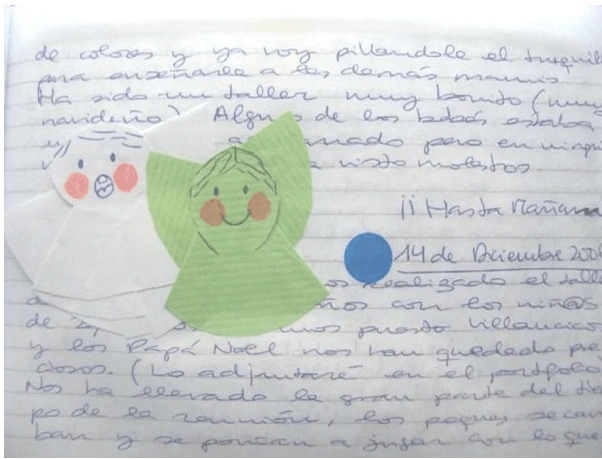 de colores y ya voy pillandole el truquill
para enseñarle a las demás mamis.
Ha sido un taller muy bonito (muy
navideño). Algun de los bebés estaba
nado pero en ningú
visto molestos.
¡¡Hasta Mañana
14 de Diciembre 200
os realizado el talle
nos con los niñ@s
de 2, mos puesto villancico
y los Papá Noel nos han quedado pre
ciosos. (Lo adjuntaré en el portfolio
Nos ha llevado la gran parte del tiem
po de la reunión, los peques se can
ban y se ponían a jugar con lo que